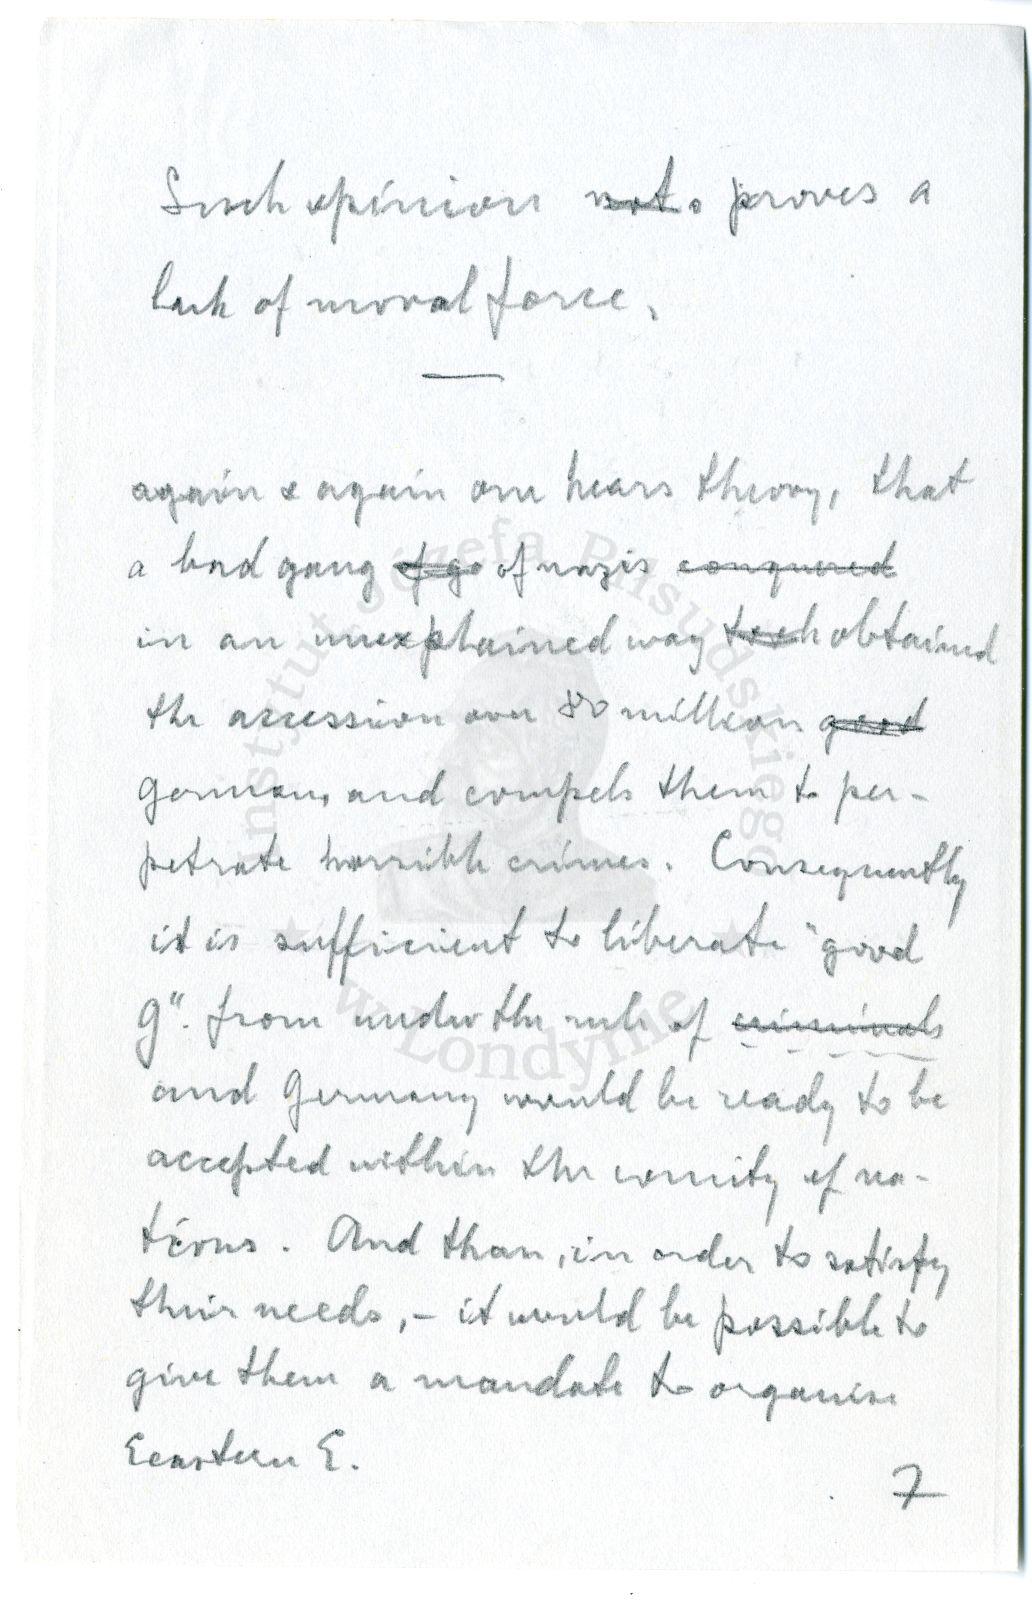 Such opinion not. proves a
lack of moral force.
again & again one hears theory, that
a bad gang of go of nazis conquered
in an unexplained way obtained
the accession over 80 million good
Germans and compels them to per-
petrate horrible crimes. Consequently
it is sufficient to liberate "good
g". from under the rule of criminals
and Germany would be ready to be
accepted within the comity of na-
tions. And than, in order to satisfy
their needs, - it would be possible to
give them a mandate to organise
Eeastern E.
7
Instytut Józefa Piłsudskiego
w Londynie